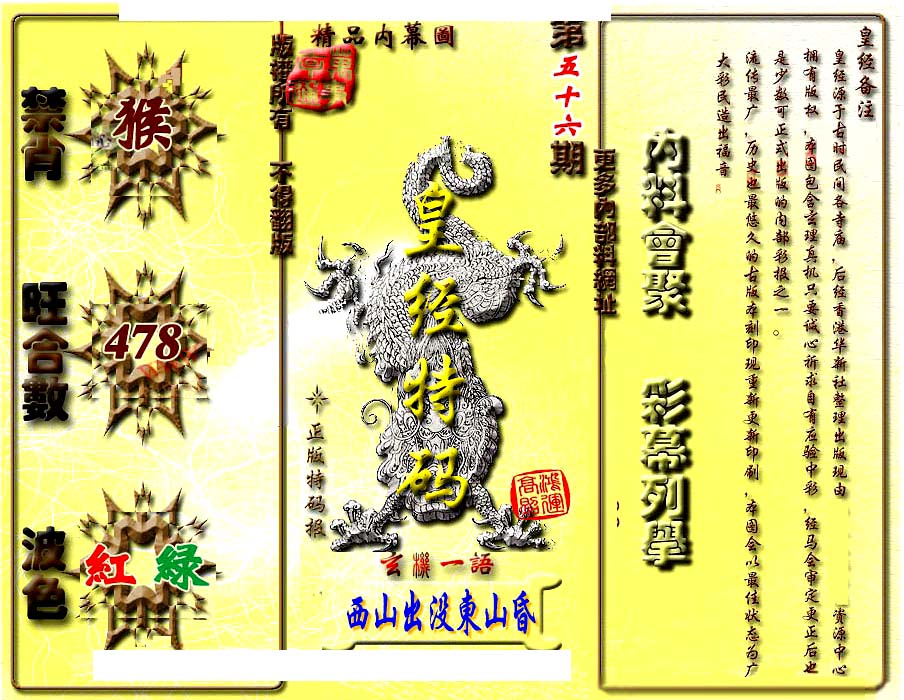 禁肖
猴
旺合數
478
波色
紅 綠
版權所有 不得翻版
精品内幕圖
第五十六期
皇经特码
正版特码报
鴻運高照
玄機一語
西山出没東山昏
更多内部料網址
内料會聚 彩幕列舉
皇经备注
皇经源于古时民间各寺庙，后经香港华新社整理出版现由 资源中心
拥有版权，本图包含玄理真机只要诚心祈求自有应验中彩，经马会审定更正后也
是少数可正式出版的内部彩报之一。
流传最广，历史也最悠久的古版本刻印现重新更新印刷，本图会以最佳状态为广
大彩民造出福音。